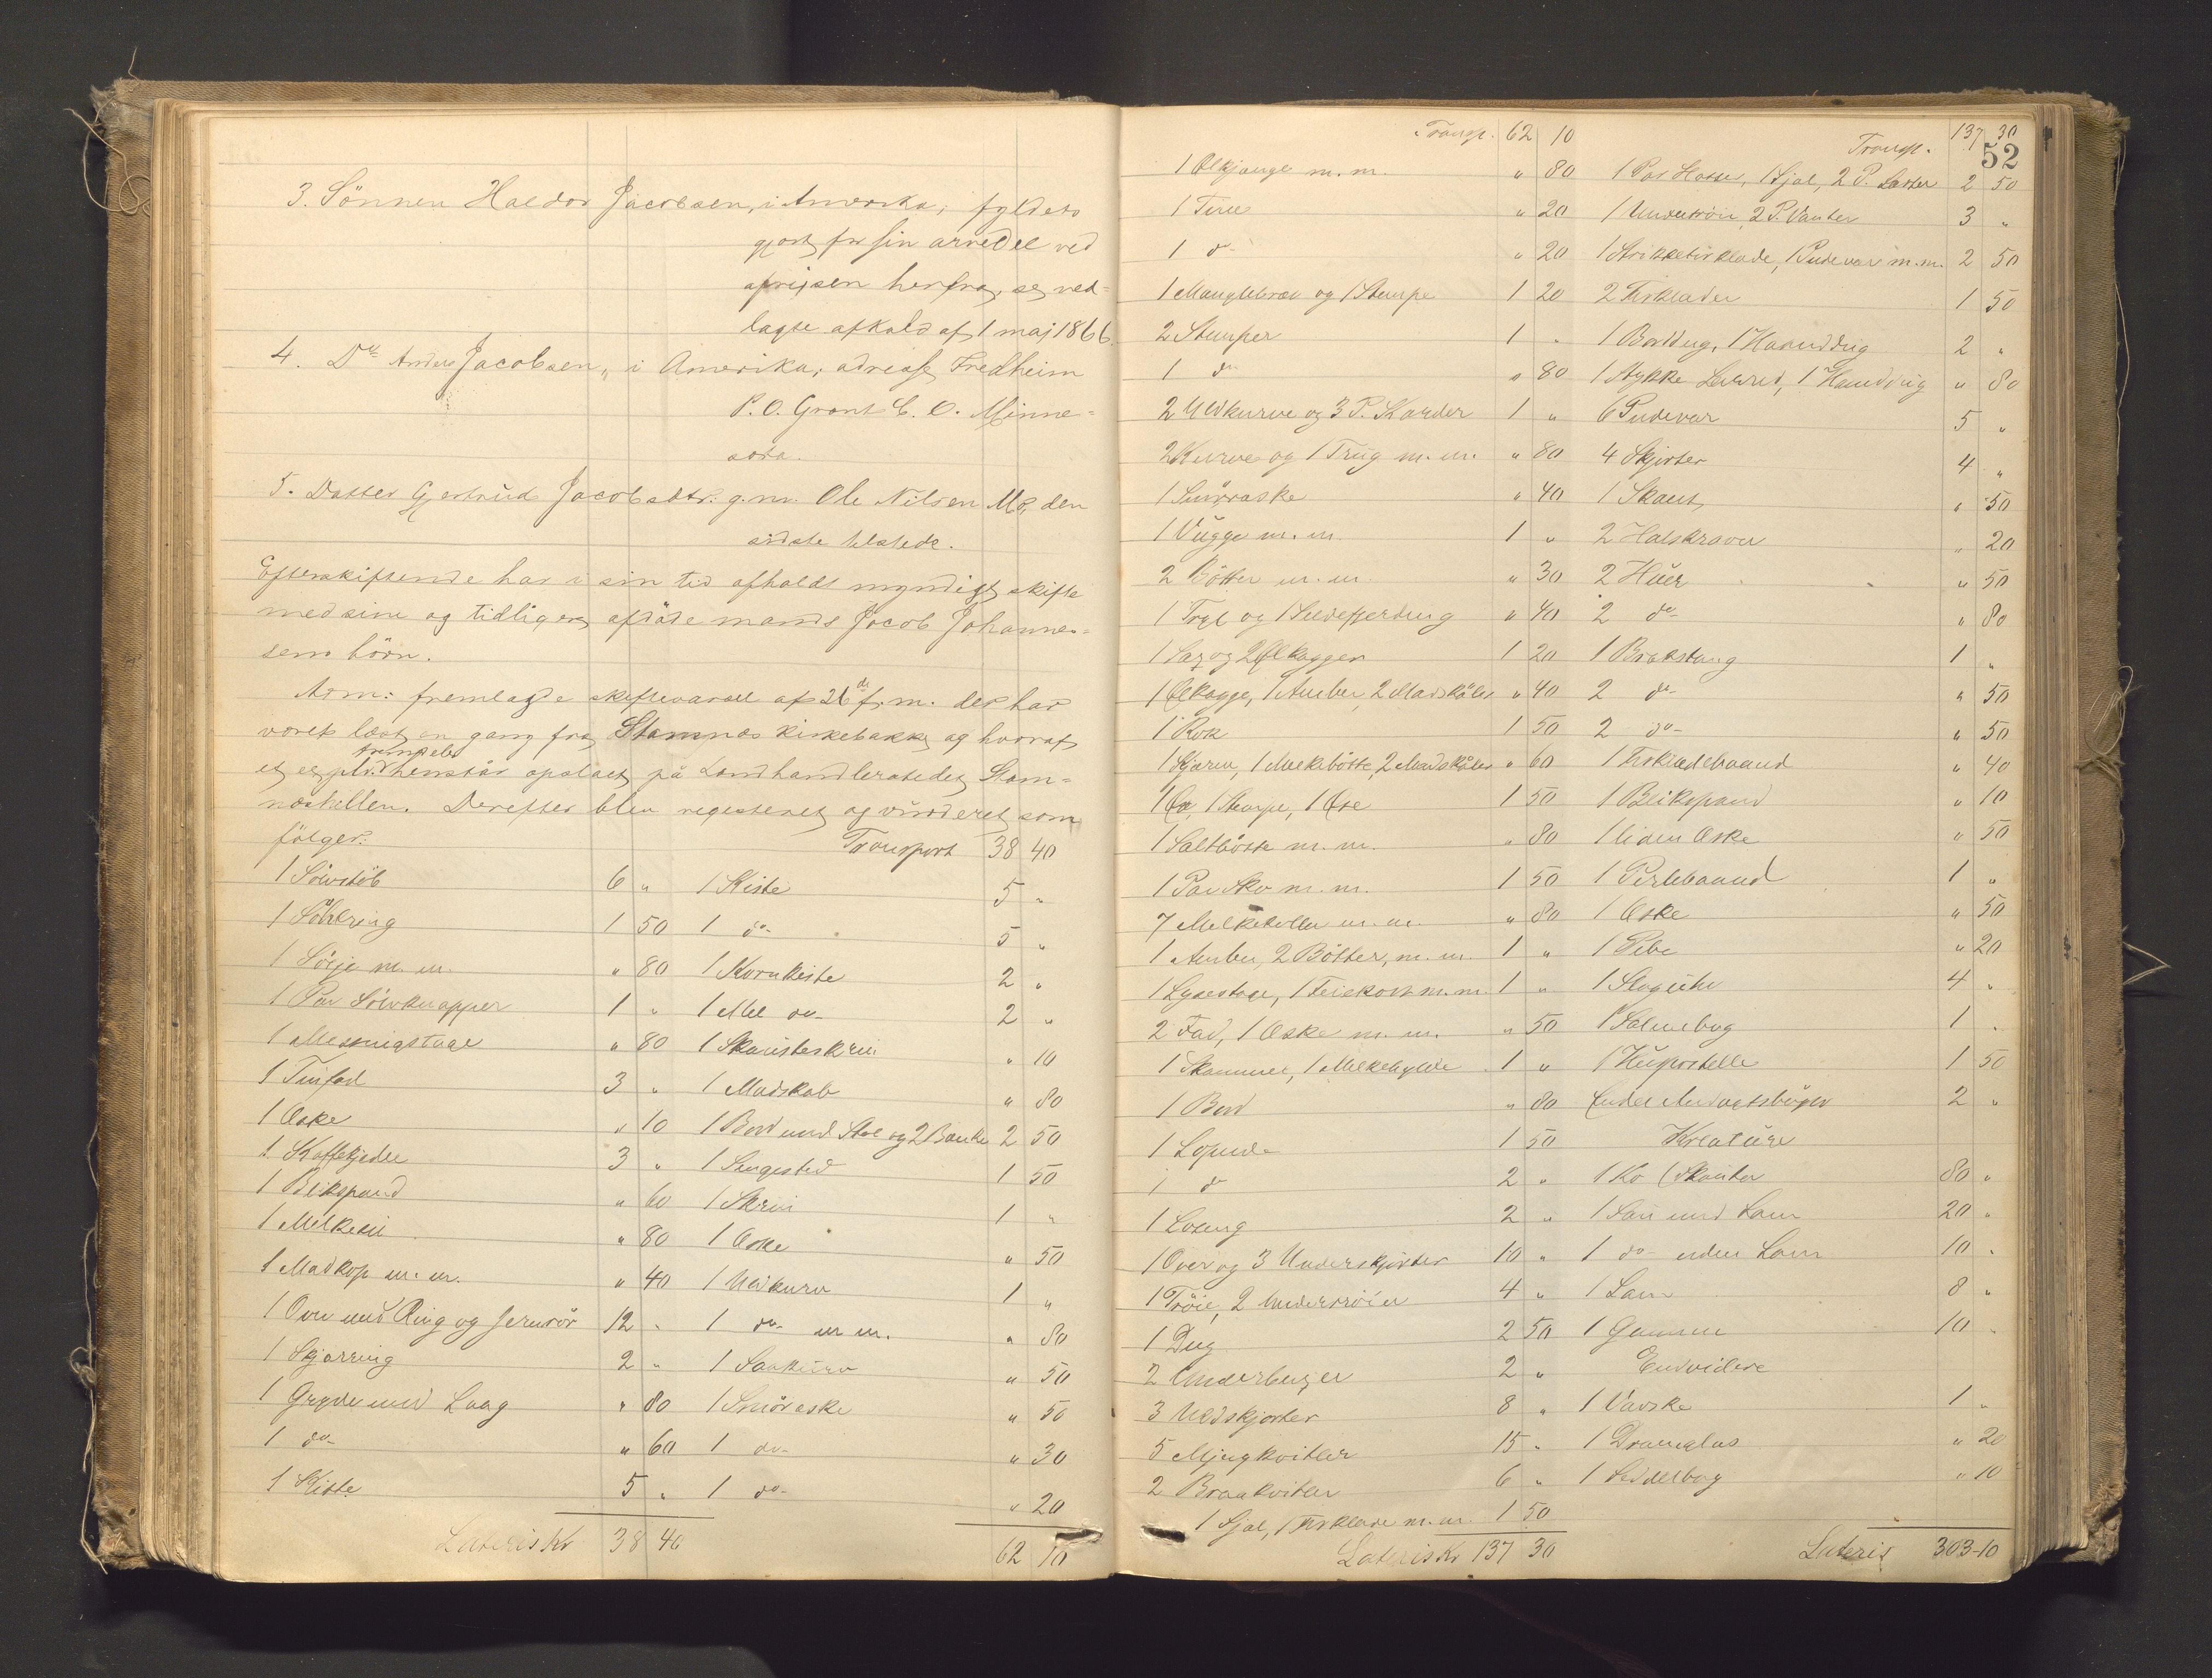 3. Sönnen Haldor Jacobsen, i Amerika, fyldest-
gjort for sin arvedel ved
afreisen herfra, se ved-
lagte afkald af 1 maj 1866.
4. Do Anders Jacobsen, i Amerika, adresse Fredheim
P. O. Grant C. O. Minne-
sota.
5. Datter Gjertrud Jacobsdtr. g. m. Ole Nilsen Mo, den
sidste tilstede.
Efterskiftende har i sin tid afholdt myndigt skifte
med sine og tidligere afdöde mands Jacob Johannes-
sens börn.
Arv: fremlagde skiftevarsel af 26de f. m. der har
været læst en gang fra Stamnæs kirkebakke og hvoraf
et exemplar henstår opslået på Landhandlerstedet Stam-
næshellen. Derefter blev registeret og vurderet som
fölger:
Transport 38 40
1 Sölvstöb 6 "
1 Sölvring 1 50
1 Sölje m. m. " 80
1 Par Sölvknapper 1 "
1 Messingstage " 80
1 Tinfad 3 "
1 Æske " 10
1 Kaffekjedel 3 "
1 Blikspand " 60
1 Melkesil " 80
1 Madkop m. m. " 40
1 Ovn med Ring og Jernrör 12 "
1 Skjærring 2 "
1 Gryde med Laag " 80
1 do " 60
1 Kiste 5 "
Lateris Kr 38 40
1 Kiste 5 "
1 do 5 "
1 Kornkiste 2 "
1 Mel do 2 "
1 Skrin " 10
1 Madskab " 80
1 Bord med Stol og 2 Bænke 2 50
1 Sengested 1 50
1 Skrin 1 "
1 Æske " 50
1 Uldkurv 1 "
1 do m. m. " 80
1 Saakurv " 50
1 Smöræske " 50
1 do " 30
1 do " 20
62 10
Transp. 62 10
1 m. m. " 80
1 Tine " 20
1 do " 20
1 Manglebræt og 1 Stampe 1 20
2 Stamper 1 "
1 do " 80
2 Uldkurve og 3 P. Karder 1 "
2 Kurve og 1 Trug m. m. " 80
1 Smöræske " 40
1 Vugge m. m. 1 "
2 Bötter m. m. " 30
1 Trug og 1 Sildefjerding " 40
1 Sag og 2 Ølkagger 1 20
1 Ølkagge, 1 Amber, 2 Madskåler " 40
1 Rok 1 50
1 Kjærne, 1 Melkebötte, 2 Madskåler " 60
1 Øx, 1 Skarpe, 1 Øse 1 50
1 Saltbötte m. m. " 80
1 Par Sko m. m. 1 50
7 Melkekoller m. m. " 80
1 Amber, 2 Bötter, m. m. 1 "
1 Lysestage, 1 Feiekost m. m. 1 "
2 Fad, 1 Æske m. m. " 50
1 Skammel, 1 Melkehylde 1 "
1 Bord " 80
1 Lopude 1 50
1 do 2 "
1 Loseng 2 "
1 Over og 3 Underskjörter 10 "
1 Tröie, 2 Undertröier 4 "
1 Dug 2 50
2 Underbuxer 2 "
3 Uldskjorter 8 "
5 Mjugkvitler 15 "
2 Braakvitler 6 "
1 Sjal, 1 Törklæde m. m. 1 50
Lateris Kr 137 30
Transp. 137 30
52
1 Par Hoser, 1 Sjal, 2 P. Lester 2 50
1 Undertröie, 2 P. Vanter 3 "
1 Strikketörklæde, 1 Pudevar m. m. 2 50
2 Törklæder 1 50
1 Bordug, 1 Haanddug 2 "
1 Stykke Lærred, 1 Haanddug " 80
6 Pudevar 5 "
4 Skjorter 4 "
1 Skaut " 50
2 Halskraver " 20
2 Huer " 50
2 do " 80
1 Brokstang 1 "
2 do " 50
2 do " 50
1 Törklædebaand " 40
1 Blikspand " 10
1 liden Æske " 50
1 Perlebaand 1 "
1 Æske " 50
1 Pibe " 20
1 Slaguhr 4 "
1 Salmebog 1 "
1 Huspostille 1 50
Endel Andagtsböger 2 "
Kreature
1 Ko (Skauta 80 "
1 Sau med Lam 20 "
1 do uden Lam 10 "
1 Lam 8 "
1 Gammer 10 "
Endvidere
1 Væske 1 "
1 Dramglas " 20
1 Sedelbog " 10
Lateris 303-10